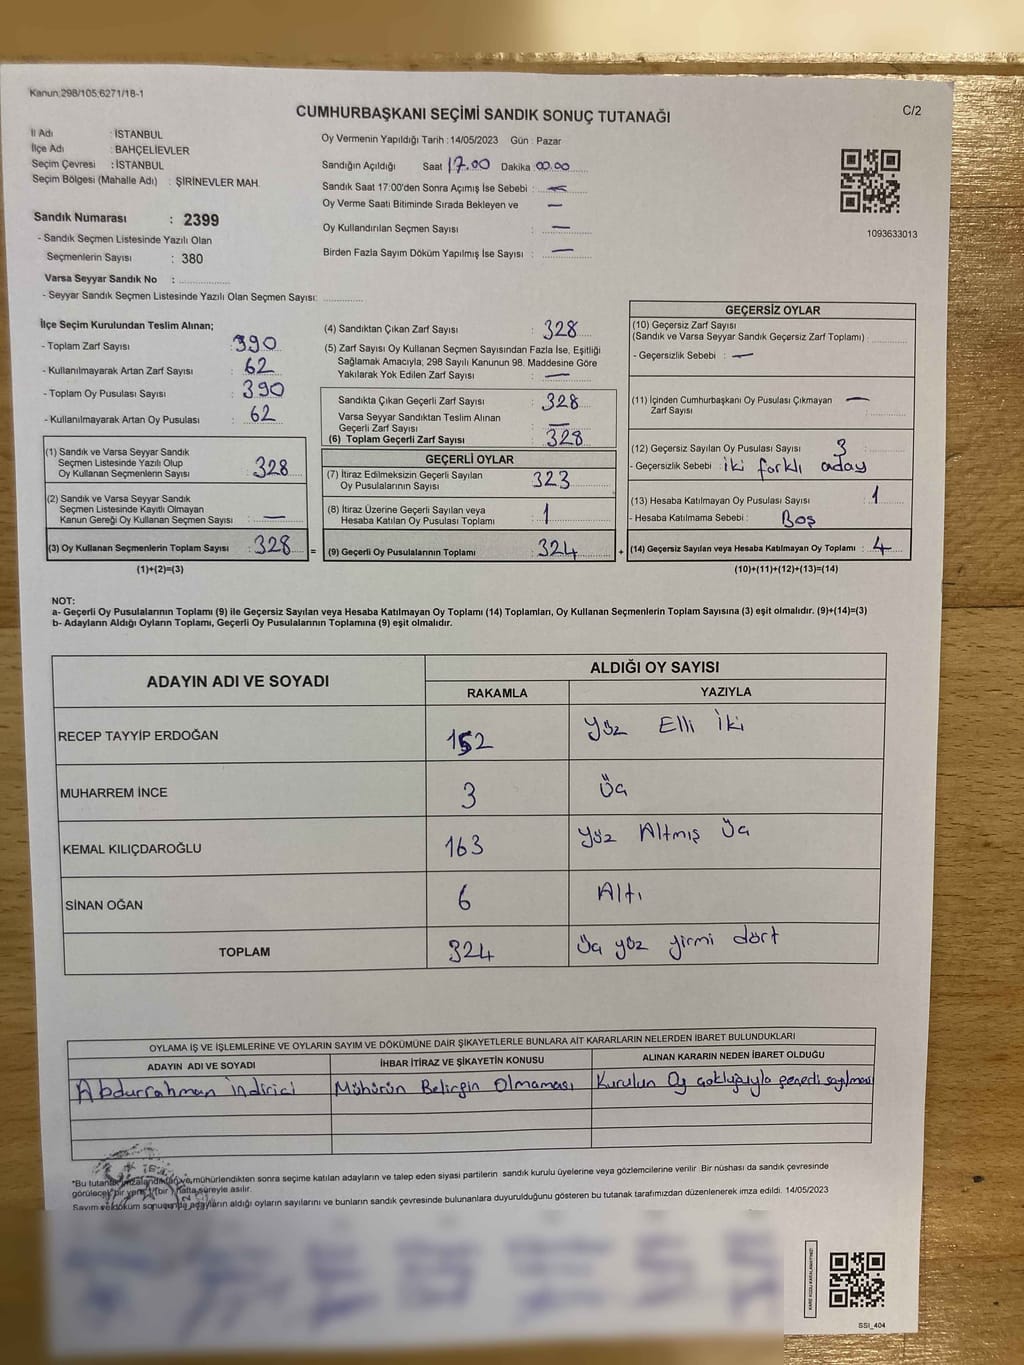 Kanun:298/105,6271/18-1
CUMHURBAŞKANI SEÇİMİ SANDIK SONUÇ TUTANAĞI
C/2
İl Adı : İSTANBUL
İlçe Adı : BAHÇELİEVLER
Seçim Çevresi : İSTANBUL
Seçim Bölgesi (Mahalle Adı) : ŞİRİNEVLER MAH.
Oy Vermenin Yapıldığı Tarih : 14/05/2023 Gün : Pazar
Sandığın Açıldığı Saat 17.00 Dakika 00.00
Sandık Saat 17:00'den Sonra Açılmış İse Sebebi : —
Oy Verme Saati Bitiminde Sırada Bekleyen ve —
Oy Kullandırılan Seçmen Sayısı : —
Birden Fazla Sayım Döküm Yapılmış İse Sayısı : —
1093633013
Sandık Numarası : 2399
- Sandık Seçmen Listesinde Yazılı Olan
Seçmenlerin Sayısı : 380
Varsa Seyyar Sandık No :
- Seyyar Sandık Seçmen Listesinde Yazılı Olan Seçmen Sayısı:
İlçe Seçim Kurulundan Teslim Alınan;
- Toplam Zarf Sayısı : 390
- Kullanılmayarak Artan Zarf Sayısı : 62
- Toplam Oy Pusulası Sayısı : 390
- Kullanılmayarak Artan Oy Pusulası : 62
(1) Sandık ve Varsa Seyyar Sandık
Seçmen Listesinde Yazılı Olup
Oy Kullanan Seçmenlerin Sayısı : 328
(2) Sandık ve Varsa Seyyar Sandık
Seçmen Listesinde Kayıtlı Olmayan
Kanun Gereği Oy Kullanan Seçmen Sayısı : —
(3) Oy Kullanan Seçmenlerin Toplam Sayısı : 328
(1)+(2)=(3)
(4) Sandıktan Çıkan Zarf Sayısı : 328
(5) Zarf Sayısı Oy Kullanan Seçmen Sayısından Fazla İse, Eşitliği
Sağlamak Amacıyla, 298 Sayılı Kanunun 98. Maddesine Göre
Yakılarak Yok Edilen Zarf Sayısı : —
Sandıkta Çıkan Geçerli Zarf Sayısı : 328
Varsa Seyyar Sandıktan Teslim Alınan
Geçerli Zarf Sayısı : —
(6) Toplam Geçerli Zarf Sayısı : 328
GEÇERLİ OYLAR
(7) İtiraz Edilmeksizin Geçerli Sayılan
Oy Pusulalarının Sayısı : 323
(8) İtiraz Üzerine Geçerli Sayılan veya
Hesaba Katılan Oy Pusulası Toplamı : 1
= (9) Geçerli Oy Pusulalarının Toplamı : 324
GEÇERSİZ OYLAR
(10) Geçersiz Zarf Sayısı
(Sandık ve Varsa Seyyar Sandık Geçersiz Zarf Toplamı) :
- Geçersizlik Sebebi : —
(11) İçinden Cumhurbaşkanı Oy Pusulası Çıkmayan —
Zarf Sayısı :
(12) Geçersiz Sayılan Oy Pusulası Sayısı : 3
- Geçersizlik Sebebi : iki farklı aday
(13) Hesaba Katılmayan Oy Pusulası Sayısı : 1
- Hesaba Katılmama Sebebi : Boş
+ (14) Geçersiz Sayılan veya Hesaba Katılmayan Oy Toplamı : 4
(10)+(11)+(12)+(13)=(14)
NOT:
a- Geçerli Oy Pusulalarının Toplamı (9) ile Geçersiz Sayılan veya Hesaba Katılmayan Oy Toplamı (14) Toplamları, Oy Kullanan Seçmenlerin Toplam Sayısına (3) eşit olmalıdır. (9)+(14)=(3)
b- Adayların Aldığı Oyların Toplamı, Geçerli Oy Pusulalarının Toplamına (9) eşit olmalıdır.
ADAYIN ADI VE SOYADI
ALDIĞI OY SAYISI
RAKAMLA YAZIYLA
RECEP TAYYİP ERDOĞAN 152 Yüz Elli İki
MUHARREM İNCE 3 Üç
KEMAL KILIÇDAROĞLU 163 Yüz Altmış Üç
SİNAN OĞAN 6 Altı
TOPLAM 324 Üç yüz yirmi dört
OYLAMA İŞ VE İŞLEMLERİNE VE OYLARIN SAYIM VE DÖKÜMÜNE DAİR ŞİKAYETLERLE BUNLARA AİT KARARLARIN NELERDEN İBARET BULUNDUKLARI
ADAYIN ADI VE SOYADI İHBAR İTİRAZ VE ŞİKAYETİN KONUSU ALINAN KARARIN NEDEN İBARET OLDUĞU
Abdurrahman İndirici Mühürün Belirgin Olmaması Kurulun Oy çokluğuyla geçerli sayılması
*Bu tutanak imzalandıktan ve mühürlendikten sonra seçime katılan adayların ve talep eden siyasi partilerin sandık kurulu üyelerine veya gözlemcilerine verilir. Bir nüshası da sandık çevresinde
görülecek bir yere 1 (bir ) hafta süreyle asılır.
Sayım ve döküm sonucunda adayların aldığı oyların sayılarını ve bunların sandık çevresinde bulunanlara duyurulduğunu gösteren bu tutanak tarafımızdan düzenlenerek imza edildi. 14/05/2023
SSI_404